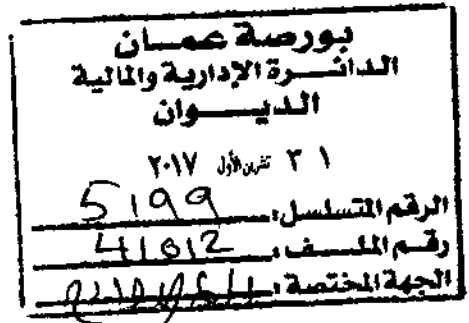 بورصة عمان
الدائرة الإدارية والمالية
الديوان
٣١ تشرين الأول ٢٠١٧
الرقم المتسلسل: 5199
رقم الملف: 41012
الجهة المختصة: